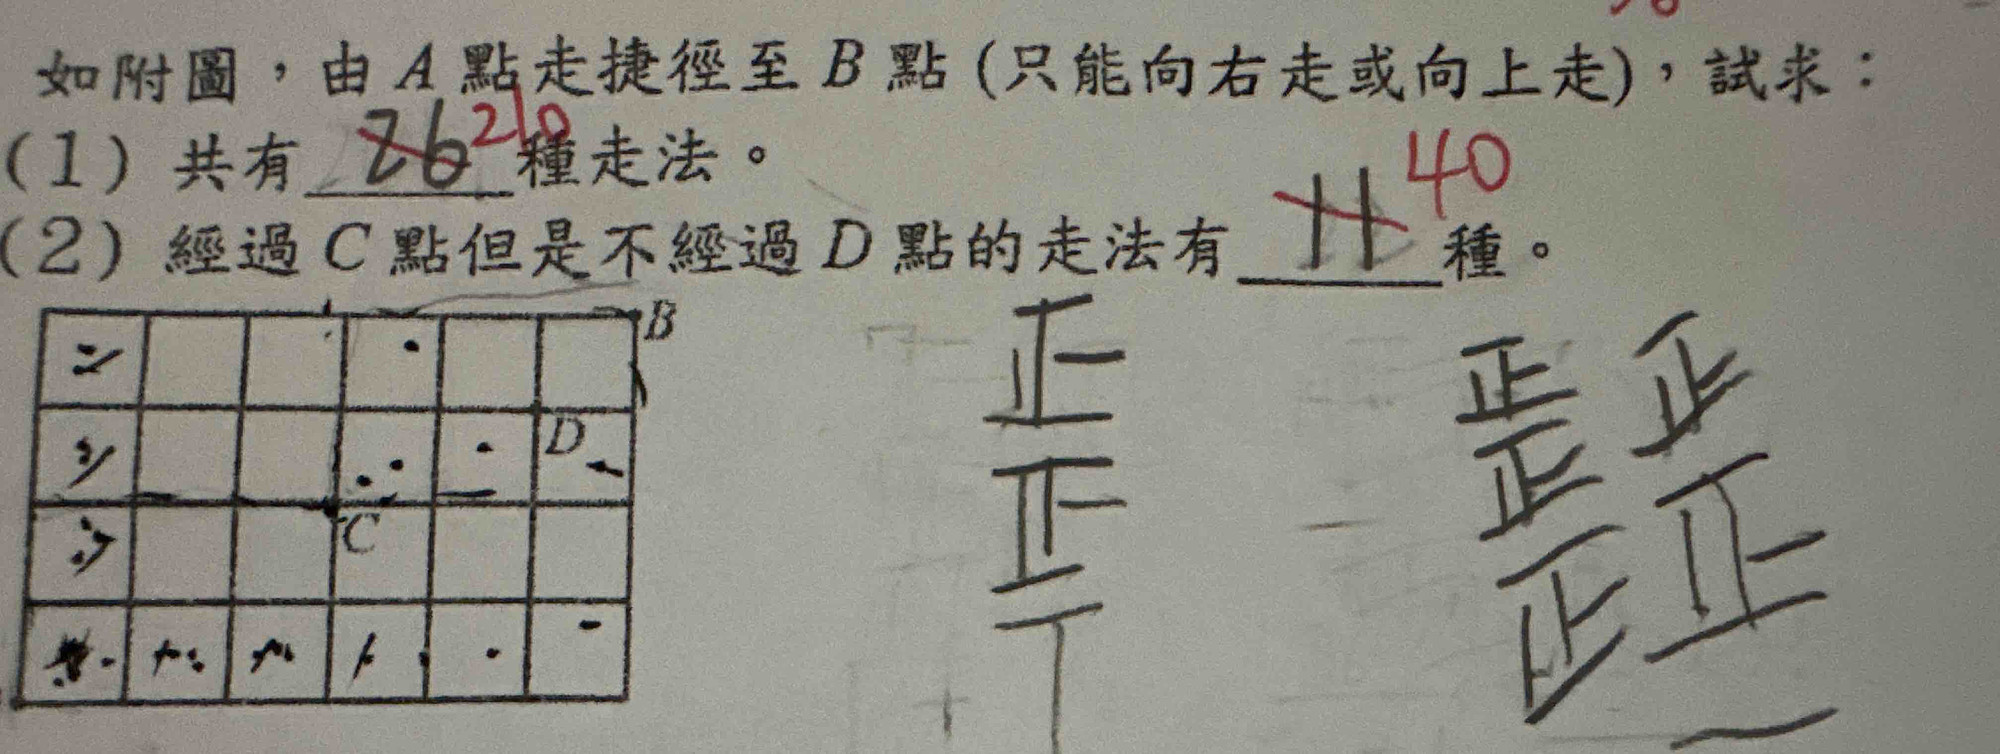 如附圖，由A點走捷徑至B點(只能向右走或向上走)，試求：
(1)共有 26 210 種走法。
(2)經過C點但是不經過D點的走法有 11 40 種。
B
D
C
正 正 正
正 正
正 正